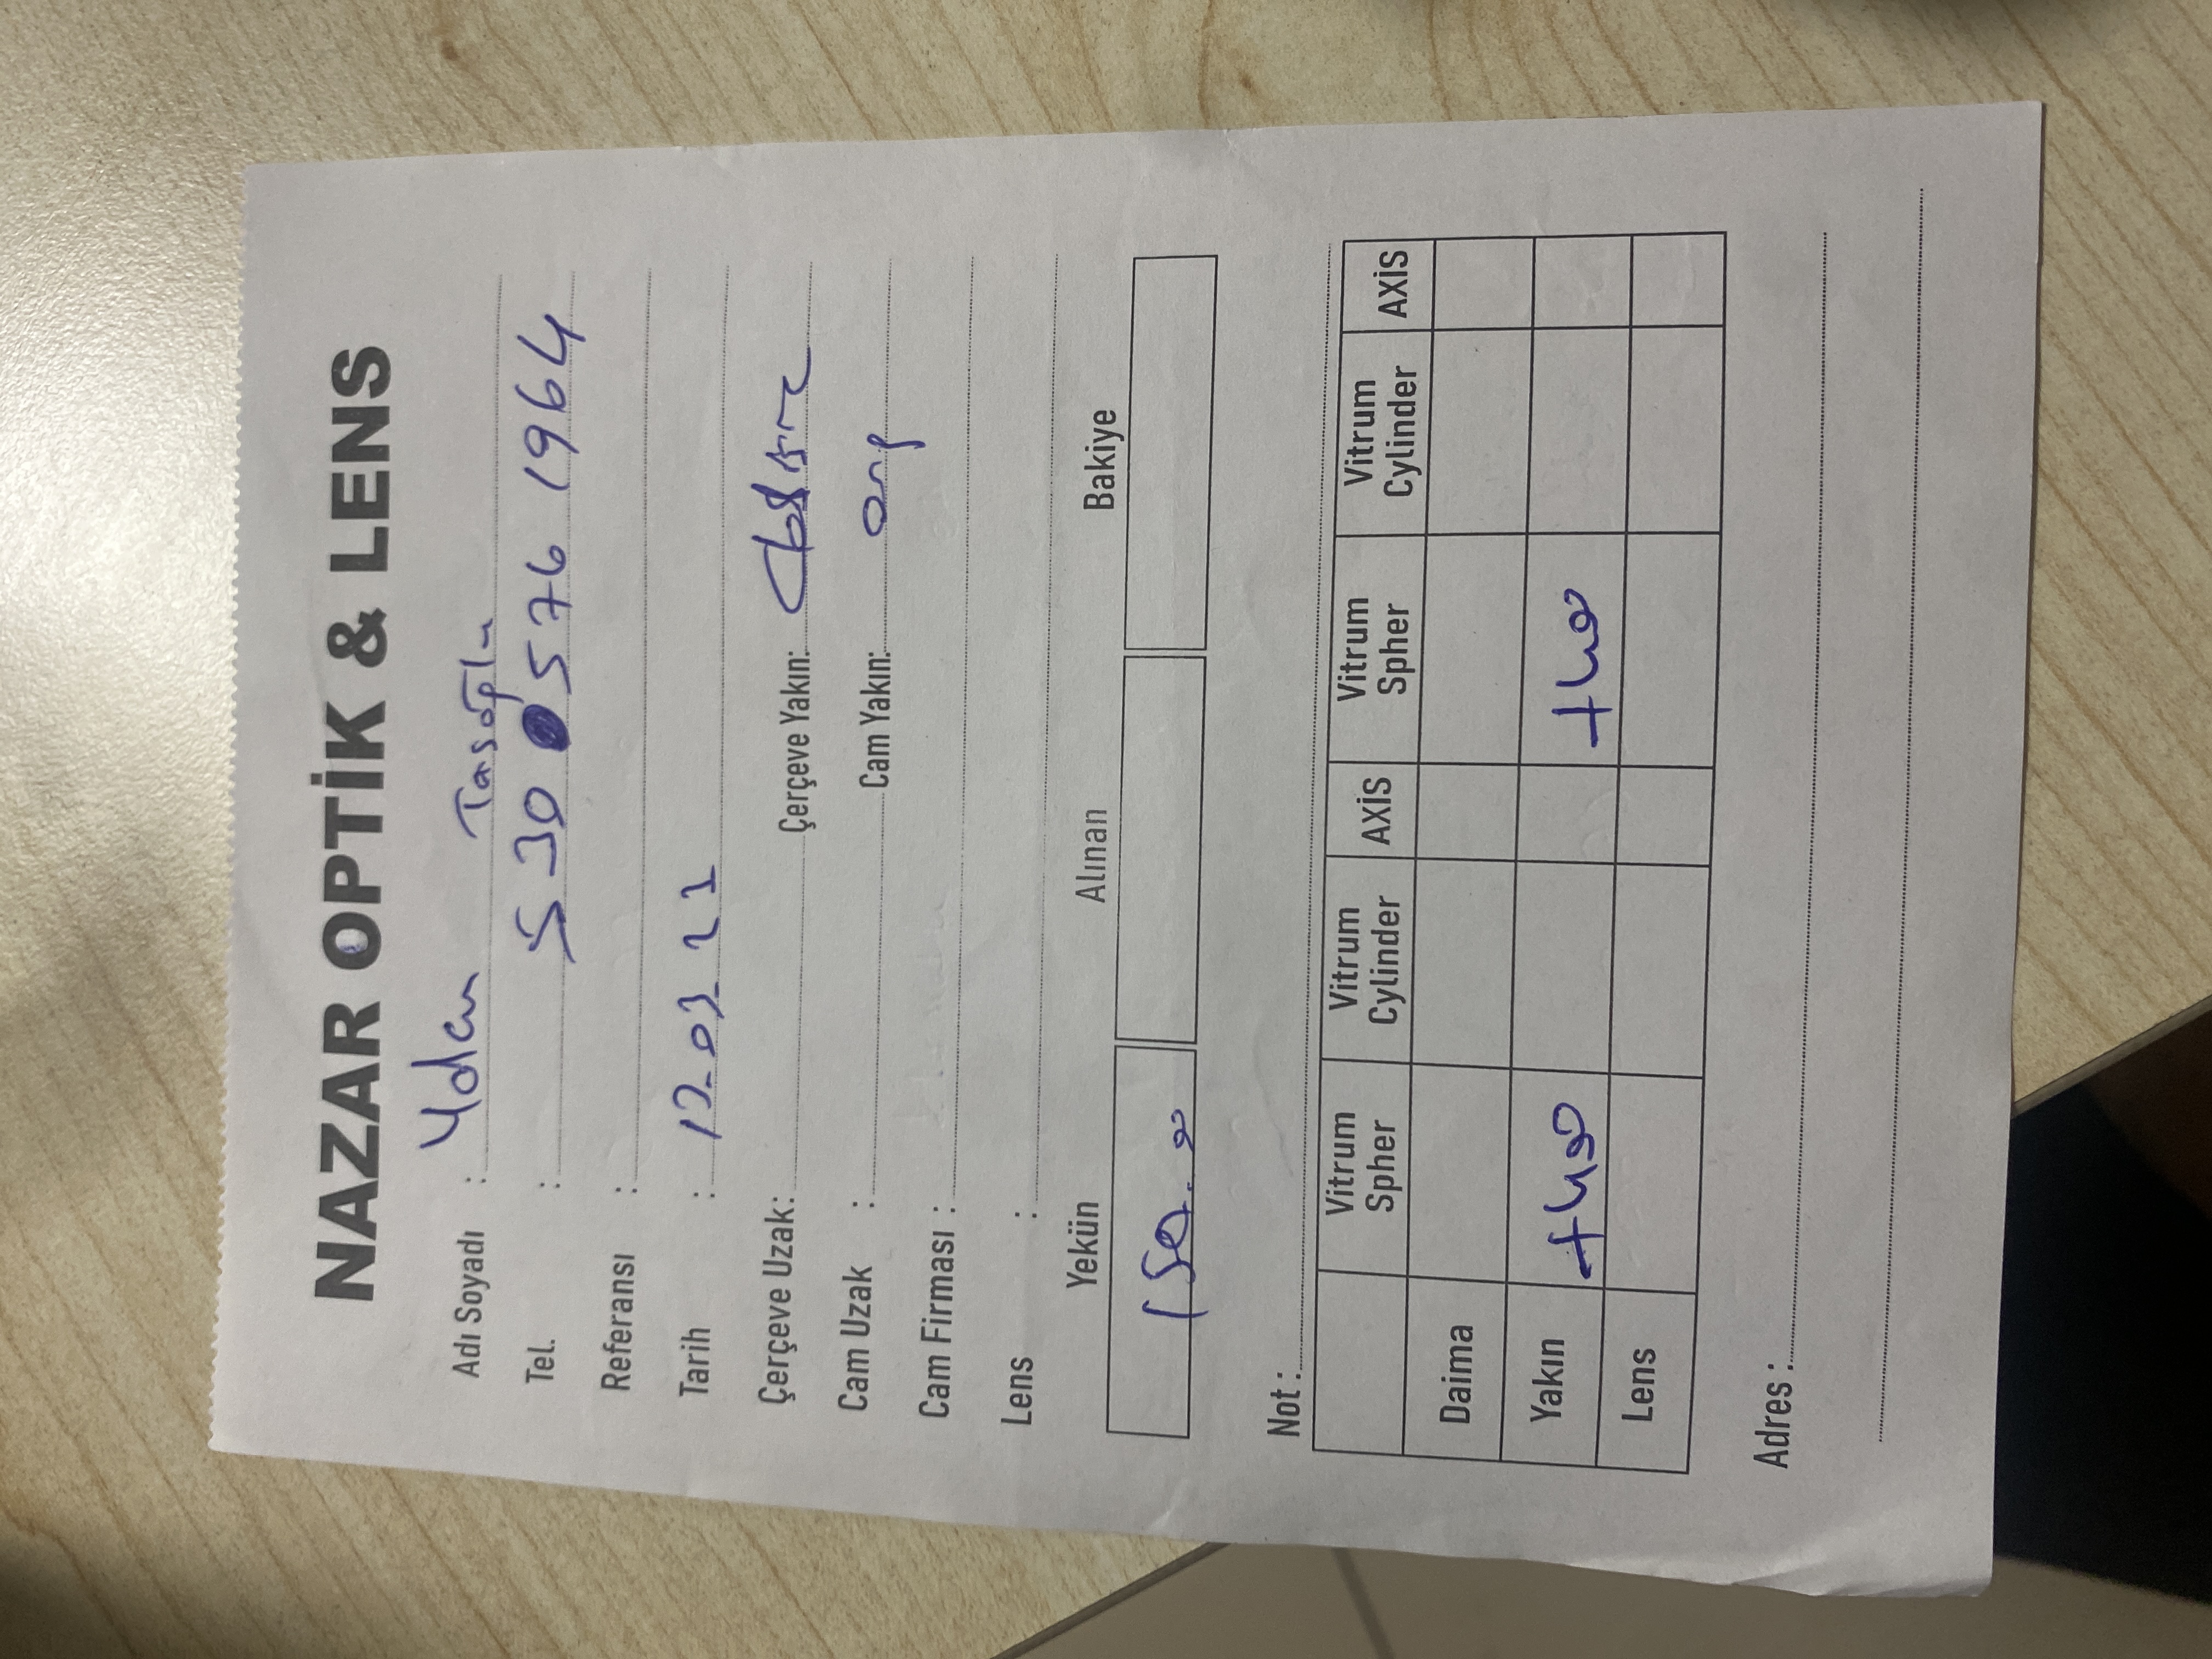 NAZAR OPTİK & LENS
Adı Soyadı : Taşoğlu
Tel. : 530 576 1964
Referansı :
Tarih :
Çerçeve Uzak: Çerçeve Yakın:
Cam Uzak : Cam Yakın: org
Cam Firması :
Lens :
Yekün Alınan Bakiye
150.00
Not :
Vitrum Spher Vitrum Cylinder AXİS Vitrum Spher Vitrum Cylinder AXİS
Daima
Yakın +400 +400
Lens
Adres :